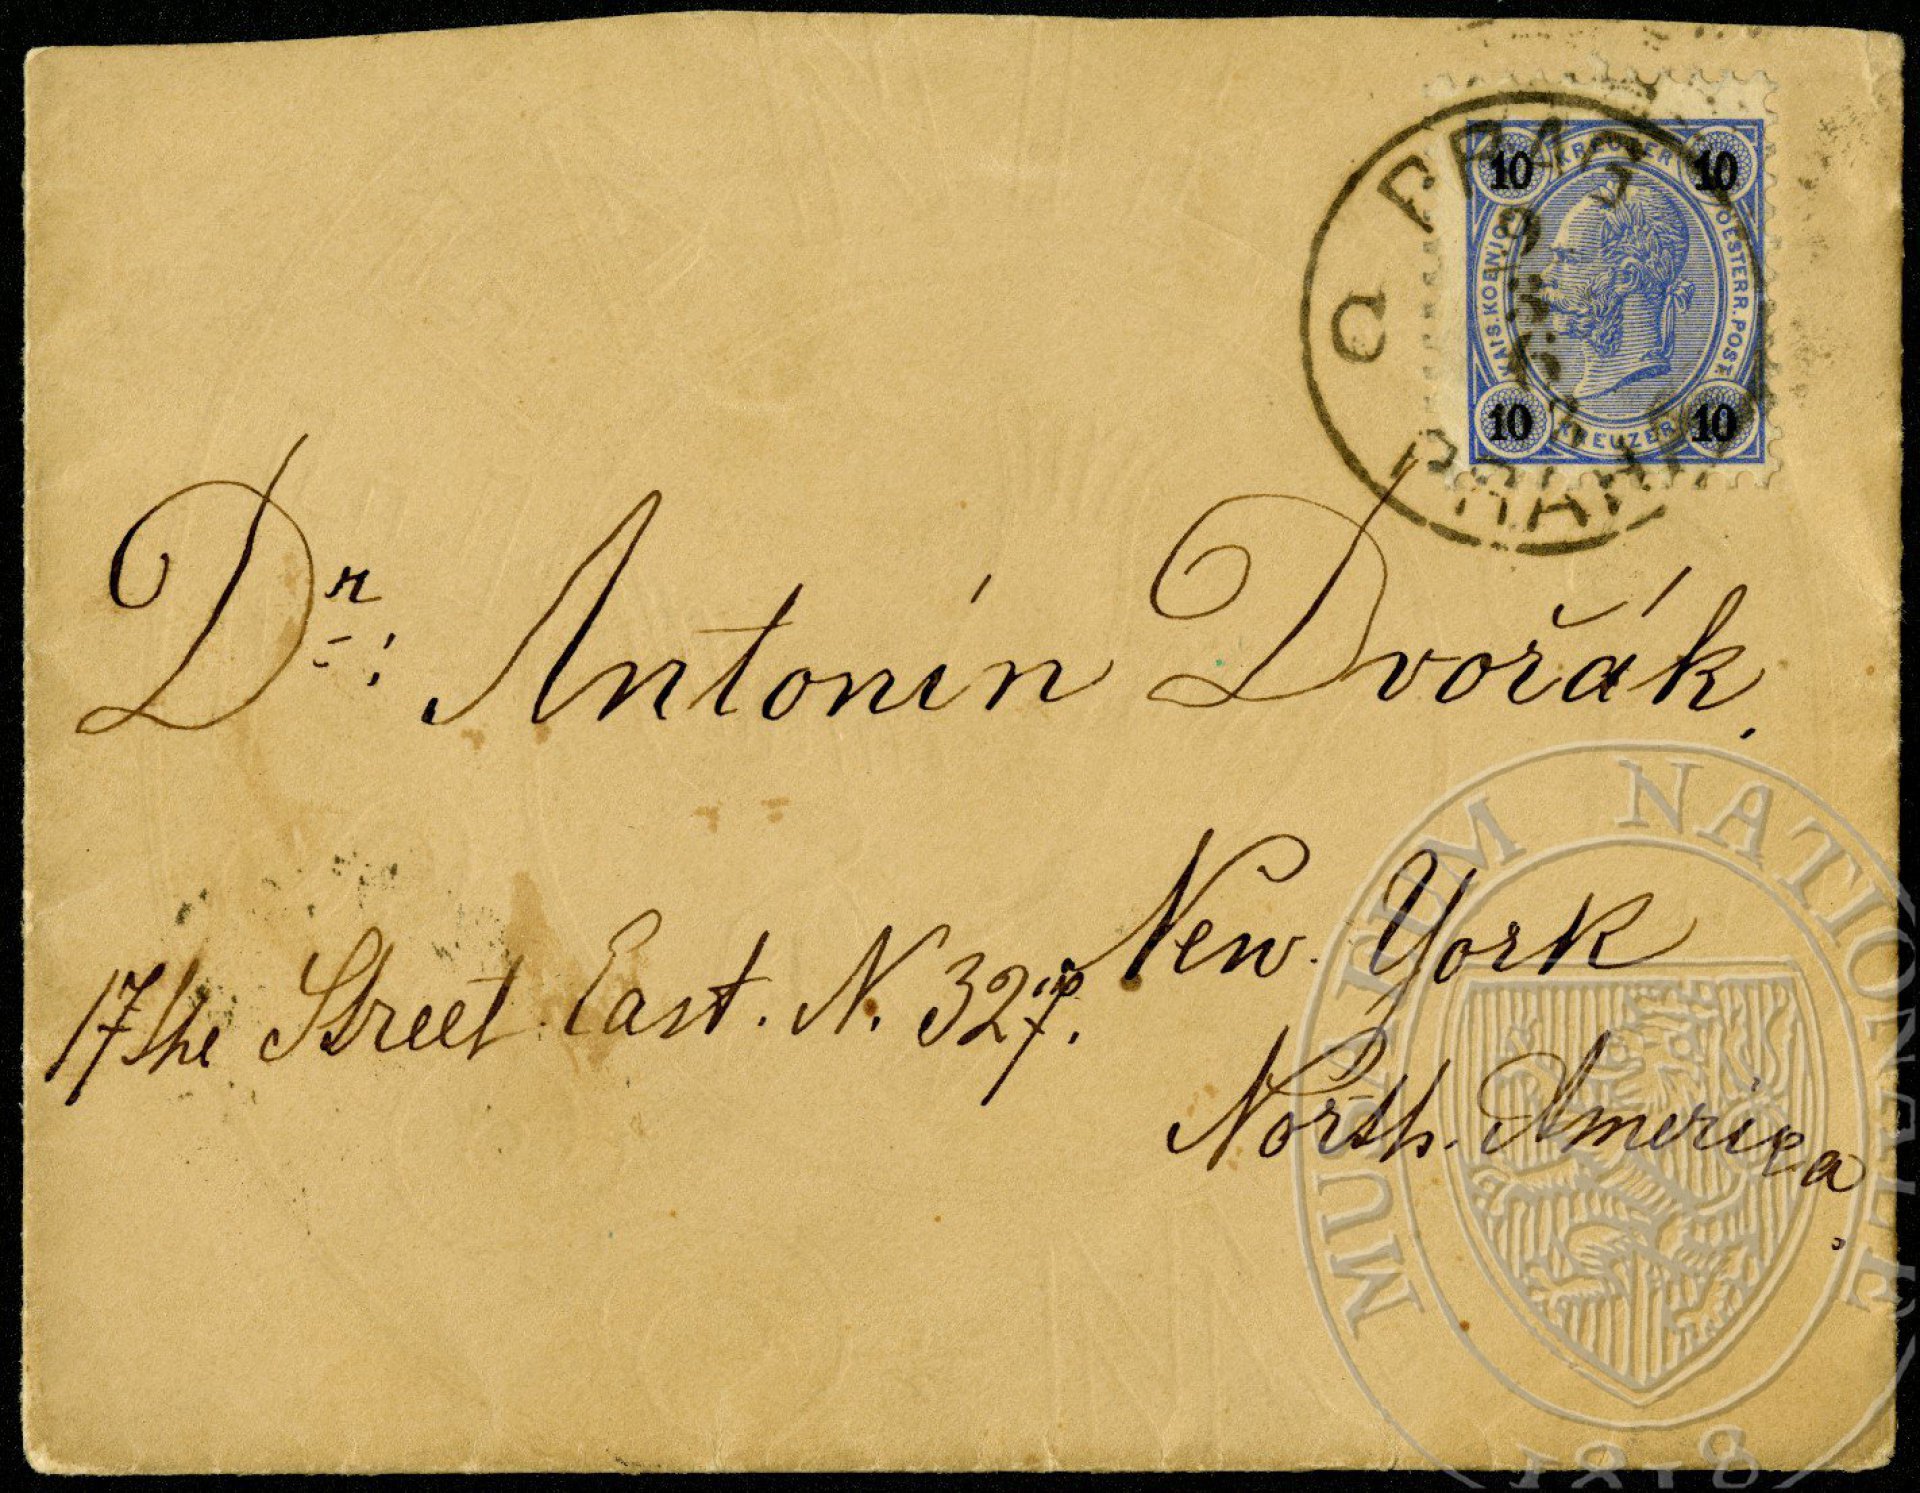 PRAG
PRAHA
10 KREUZER 10
KAIS. KOENIGL. OESTERR. POST.
10 KREUZER 10
Dr. Antonín Dvořák.
New York
17the Street East. N. 327.
North. America.
MUSAEUM NATIONALE
1818